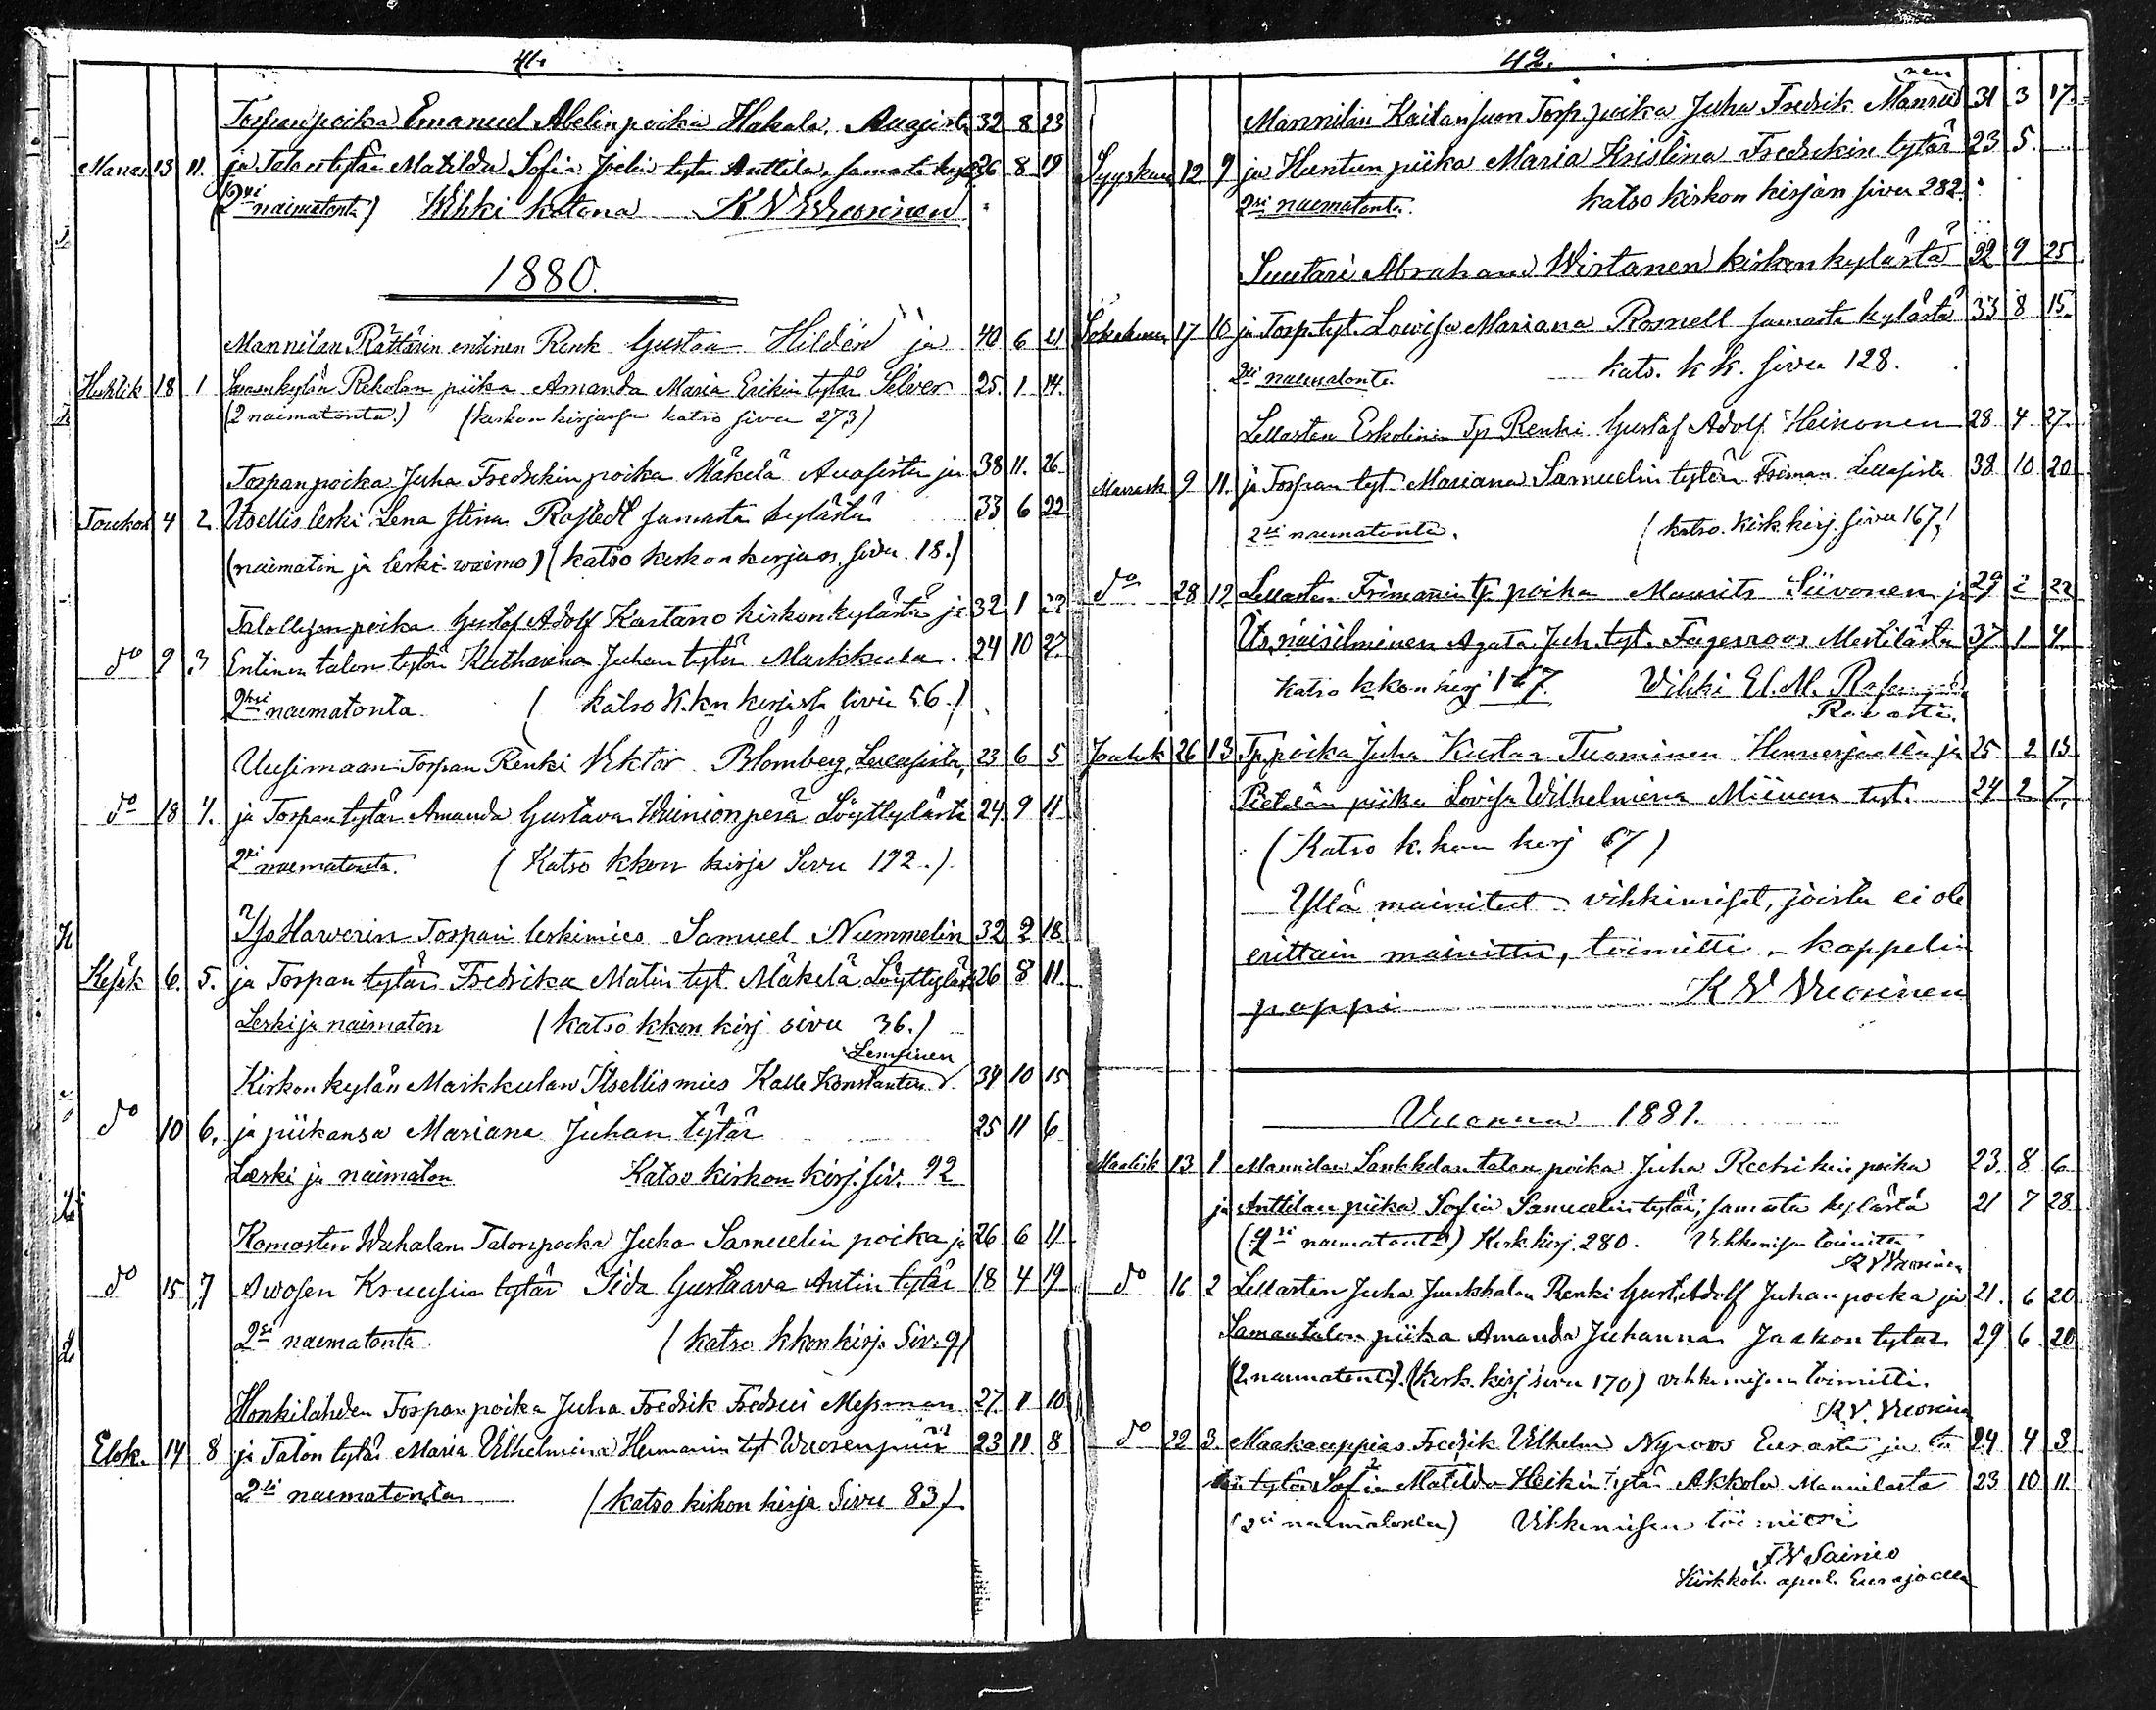 41.
Torpan poika Emanuel Abelin poika Hakala, Auasista 32 8 23
Marras 13 11. ja Talon tytär Matilda Sofia Joelin tytär Anttila, samasta kyl. 26 8 19
(2si naimatonta) Wihki kotona K W Wuorinen
1880.
Mannilan Rättärin entinen Renk Gustaa Hildén ja 40 6 21
Huhtik 18 1 Rekolan piika Amanda Maria Erikin tytär Silver 25. 1 14.
(2 naimatonta.) (kirkon kirjassa katso sivu 273)
Torpan poika Juha Fredrikin poika Mäkelä Auasista ja 38 11. 26
Toukok 4 2. Itsellis leski Lena Stina Rostedt samasta kylästä 33 6 22
(naimatin ja leski waimo) (katso kirkon kirjaas, sivu. 18.)
Talollisen poika Gustaf Adolf Kaitano kirkonkylästä ja 32 1 22
do 9 .3 Entinen talon tytär Katharina Juhan tytär Markkula. 24 10 27.
2si naimatonta (katso K.kn kirjasta sivu 56.)
Uusimaan Torpan Renki Viktor Blomberg, 23 6 5
do 18 4. ja Torpan tytär Amanda Gustava Wainionperä Löyttylästä 24 9 11
2si naimatonta. (Katso kkon kirja Sivu 192.)
Torpan leskimies Samuel Nummelin 32 2 18
Kesäk 6. 5. ja Torpan tytär Fredrika Matin tyt Mäkelä Löyttyläst 26 8 11.
Leski ja naimaton (katso kkon kirj sivu 36.)
Lemsinen
Kirkonkylän Markkulan Itsellismies Kalle Konstantin 34 10 15
do 10 6. ja piikansa Mariana Juhan tytär 25 11 6
Leski ja naimaton Katso kirkon kirj. siv. 92
Komosten Wahalan Talonpoika Juha Samuelin poika ja 26 6 11
do 15 7 Auvosen Kruusin tytär Iida Gustaava Antin tytär 18 4 19
2si naimatonta (katso kkon kirj. Siv. 9)
Honkilahden Torpan poika Juha Fredrik Fredrii Messman 27. 11 10
Elok. 14 8 ja Talon tytär Maria Vilhelmina Hermanin tyt Wuorenpää 23 11. 8
2si naimatonta (katso kirkon kirja Sivu 83)
42.
nen
Mannilan Kaitansum Torp. poika Juha Fredrik Mansi 31 3 17.
Syyskuu 12 9 ja Huntun piika Maria Kristina Fredrikin tytär 23 5.
2si naimatonta. katso kirkon kirjan sivu 282.
Suutari Abraham Wirtanen kirkonkylästä 22 9 25
Lokakuu 17 10 ja Torp. tyt. Lowisa Mariana Rosnell samasta kylästä 33 8 15.
2si naimatonta. kats. k k. sivu 128.
Lellasten Eskolinin Tp Renki Gustaf Adolf Heinonen 28 4 27.
Marrask 9 11. ja Torpan tyt Mariana Samuelin tytär Friman Lellasista 38 10 20
2si naimatonta. (katso. Kirk. kirj. sivu 167.)
do 28 12 Lellasten Frimannin tp. poika Maurits Siivonen ja 29 2 22
Its. näisilminen Agata Juh. tyt. Fagerroos Mestilästä 37 1 4.
Katso kkon kirj 167. Vihki El. M.
Raumasta.
Jouluk 26 13 Tp. poika Juha Kustaa Tuominen Hinnerjoelta ja 25. 2 13
Pietilän piika Lovisa Wilhelmina Miinan tyt. 24 2 7.
(Katso k. kon kirj 67)
Yllä mainitut vihkimiset, joista ei ole
erittäin mainittu, toimitti - kappelin
pappi K W Wuorinen
Vuonna 1881.
Maalisk 13 1 Mannilan Sankkolan talon poika Juha Reetrikin poika 23. 8 6
ja Anttilan piika Sofia Samuelin tytär, samasta kylästä 21 7 28
(2si naimatonta) Kirk. kirj. 280. Vihkimisen toimitta
K W Wuorinen
do 16 2 Lellasten Juha Junkkalan Renki Gust. Adolf Juhan poika ja 21. 6 20
Saman talon piika Amanda Juhanna Jaakon tytär 29 6 20
(2 naimatonta). (Kirk. kirj sivu 170) vihkimisen toimitti.
K. W. Wuorinen
do 22 3. Maakauppias Fredrik Vilhelm Nyroos Eurasta ja ta 24 4 3
lon tytär Sofia Matilda Heikin tytär Akkola Mannilasta 23 10 11.
(2si naimatonta) Vihkimisen toimitti
F W Sainio
Kirkkoh. apul. Eurajoella